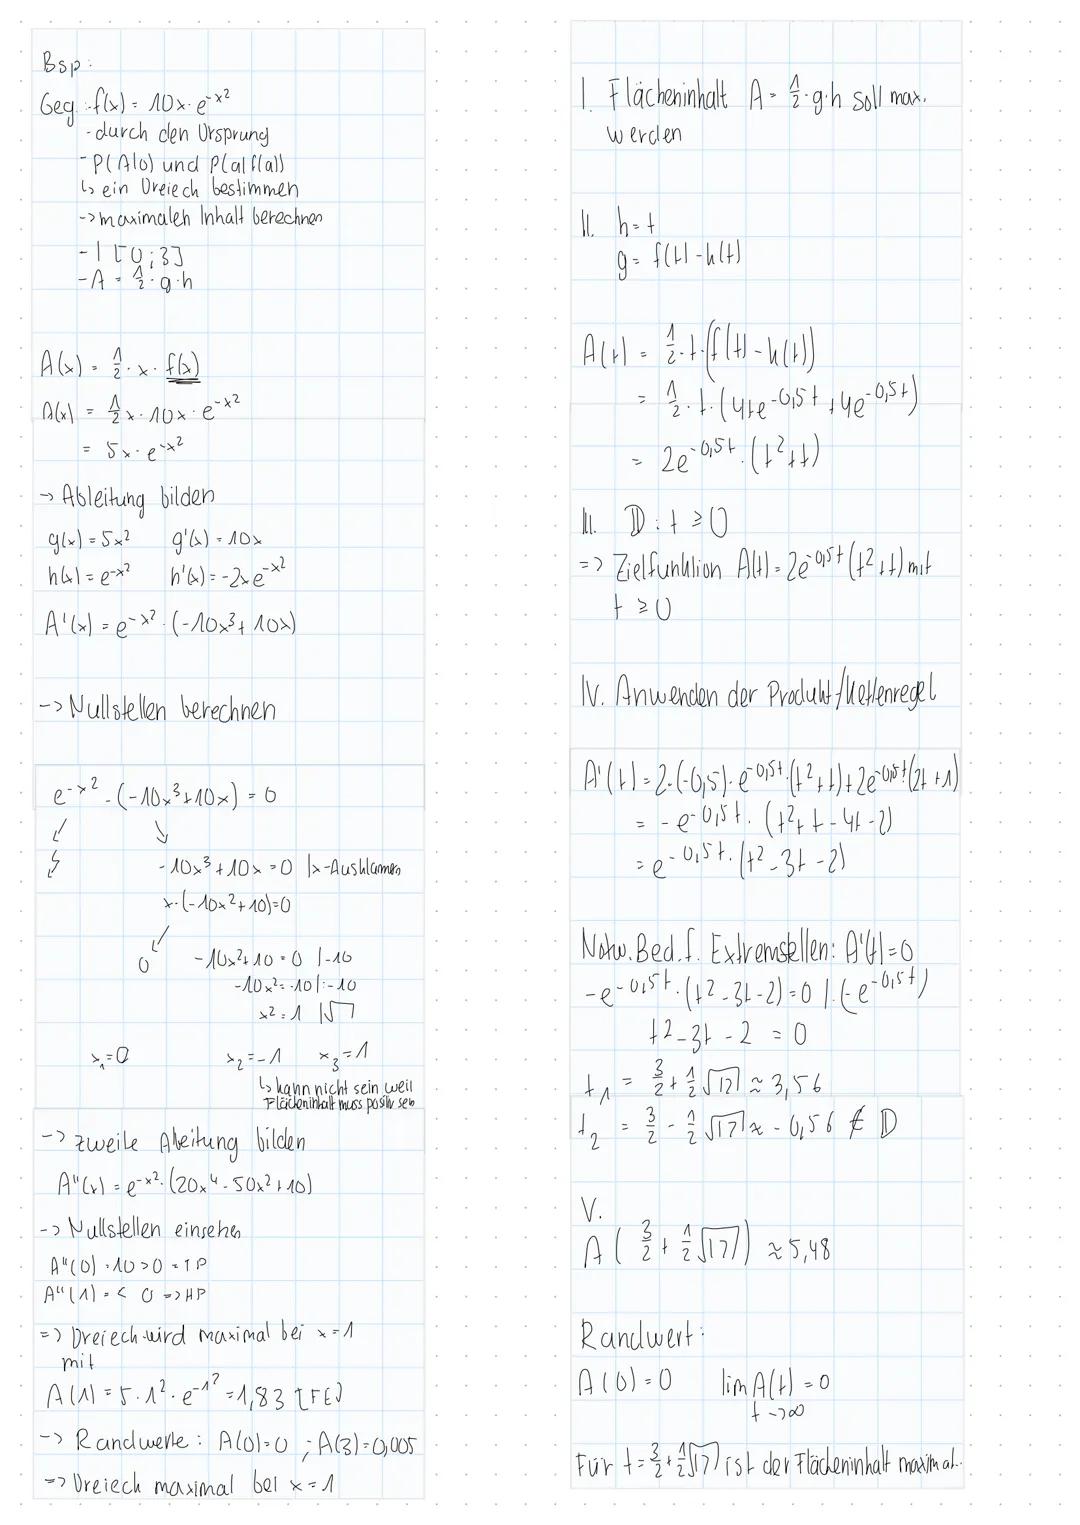 Bsp:
Geg.: f(x) = 10x · e^-x²
- durch den Ursprung
- P(A|0) und P(a|f(a))
↳ ein Dreieck bestimmen
-> maximalen Inhalt berechnen
- I [0;3]
- A = 1/2 · g · h
A(x) = 1/2 · x · f(x)
A(x) = 1/2 x · 10x · e^-x²
= 5x · e^-x²
-> Ableitung bilden
g(x) = 5x² g'(x) = 10x
h(x) = e^-x² h'(x) = -2x e^-x²
A'(x) = e^-x² · (-10x³ + 10x)
-> Nullstellen berechnen
e^-x² · (-10x³ + 10x) = 0
-10x³ + 10x = 0 | x-Ausklamen
x · (-10x² + 10) = 0
0 -10x² + 10 = 0 | -10
-10x² = -10 | : -10
x² = 1 | √
x₁ = 0 x₂ = -1 x₃ = 1
↳ kann nicht sein weil
Flächeninhalt muss positiv sein
-> zweite Ableitung bilden
A''(x) = e^-x² · (20x⁴ - 50x² + 10)
-> Nullstellen einsehen
A''(0) = 10 > 0 = TP
A''(1) = < 0 => HP
=> Dreieck wird maximal bei x = 1
mit
A(1) = 5 · 1² · e^-1² = 1,83 [FE]
-> Randwerte: A(0) = 0 ; A(3) = 0,005
=> Dreieck maximal bei x = 1
I. Flächeninhalt A = 1/2 · g · h soll max.
werden
II. h = t
g = f(t) - h(t)
A(t) = 1/2 · t · (f(t) - h(t))
= 1/2 · t · (4te^-0,5t + 4e^-0,5t)
= 2e^-0,5t · (t² + t)
III. 𝔻: t ≥ 0
=> Zielfunktion A(t) = 2e^-0,5t (t² + t) mit
t ≥ 0
IV. Anwenden der Produkt/Kettenregel
A'(t) = 2 · (-0,5) · e^-0,5t · (t² + t) + 2e^-0,5t · (2t + 1)
= -e^-0,5t · (t² + t - 4t - 2)
= e^-0,5t · (t² - 3t - 2)
Notw. Bed. f. Extremstellen: A'(t) = 0
-e^-0,5t · (t² - 3t - 2) = 0 | : (-e^-0,5t)
t² - 3t - 2 = 0
t₁ = 3/2 + 1/2 √17 ≈ 3,56
t₂ = 3/2 - 1/2 √17 ≈ -0,56 ∉ 𝔻
V.
A (3/2 + 1/2 √17) ≈ 5,48
Randwert:
A(0) = 0 lim A(t) = 0
t -> ∞
Für t = 3/2 + 1/2 √17 ist der Flächeninhalt maximal.